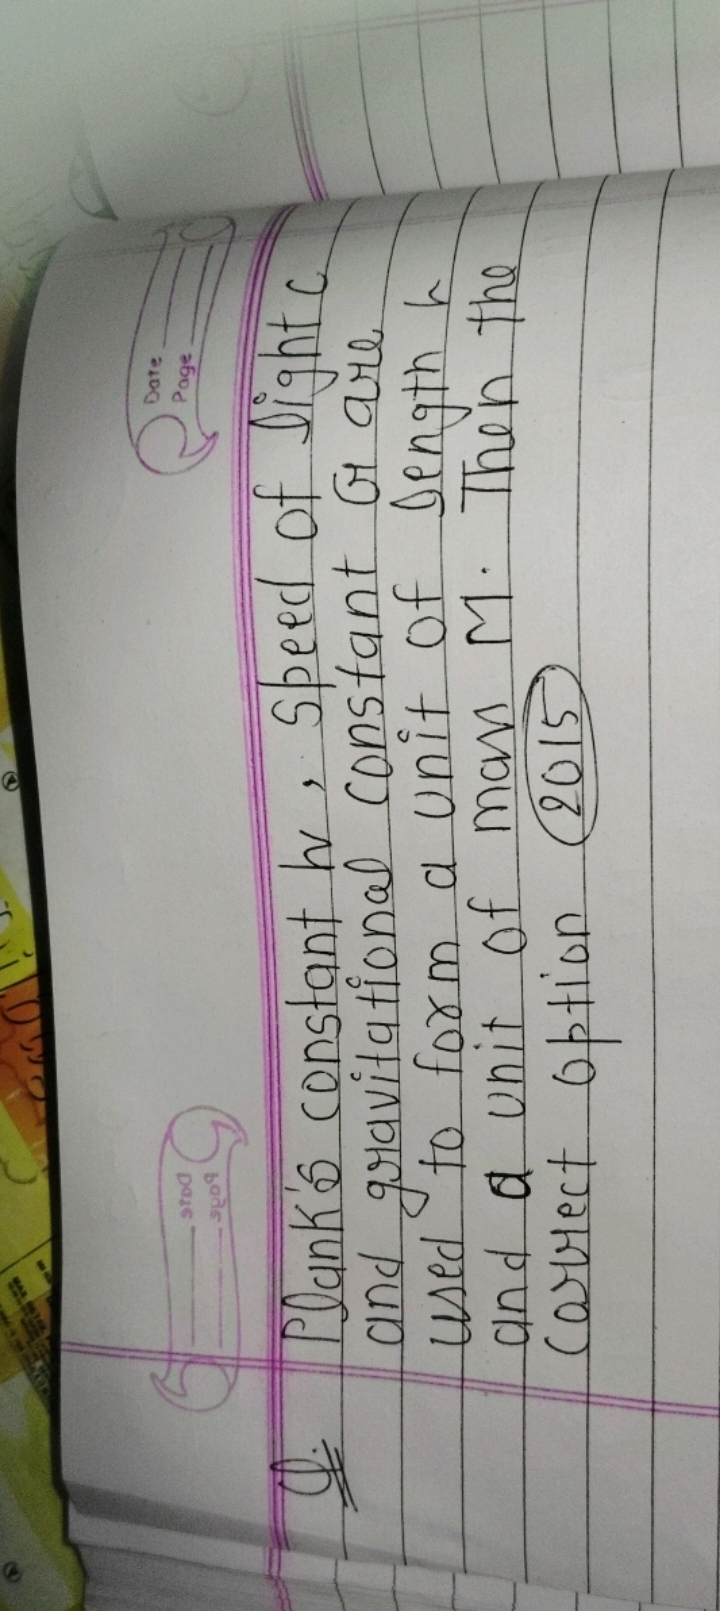 Date
Page
Date
Page
Q. Plank's constant h, speed of light c
and gravitational constant G are
used to form a unit of length L
and a unit of mass M. Then the
correct option 2015